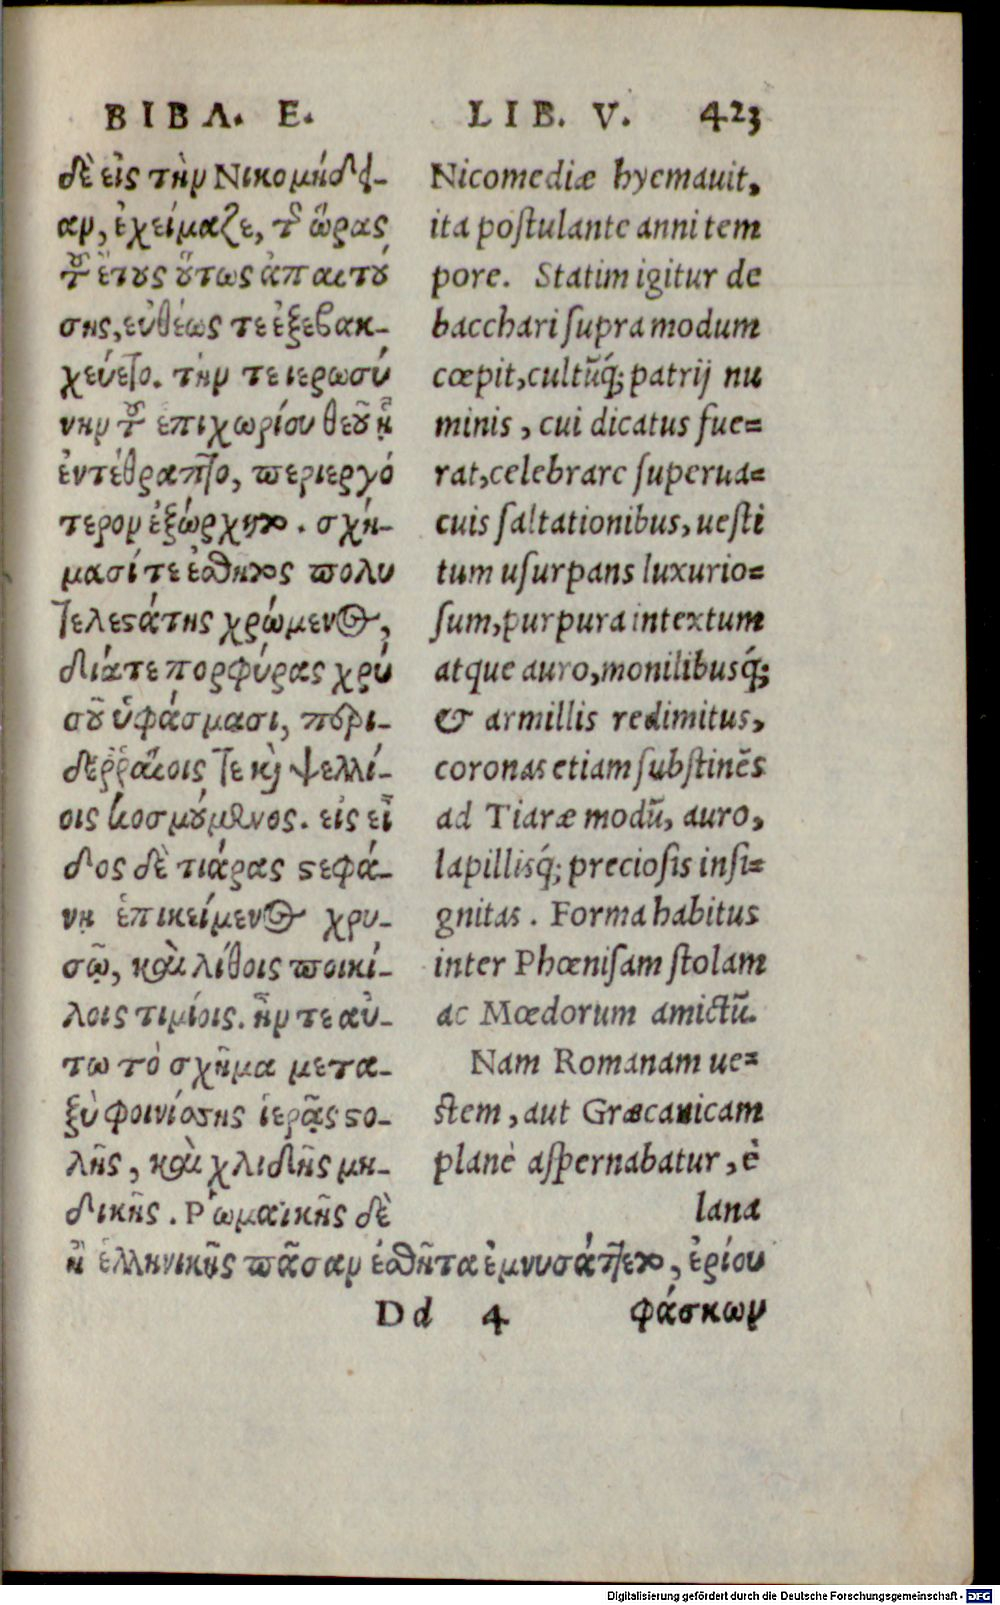 ΒΙΒΛ. Ε.
δὲ εἰς τὴν Νικομήδει-
αν, ἐχείμαζε, τῆς ὥρας
τοῦ ἔτους οὕτως ἀπαιτού
σης, εὐθέως τε ἐξεβακ-
χεύετο. τήν τε ἱερωσύ
νην τοῦ ἐπιχωρίου θεοῦ ᾗ
ἐντέθραπτο, περιεργό
τερον ἐξώρχητο. σχή-
μασί τε ἐσθῆτος πολυ
τελεστάτης χρώμενος,
διά τε πορφύρας χρυ
σοῦ ὑφάσμασι, περι-
δεῤῥαίοις τε καὶ ψελλί-
οις κοσμούμενος. εἰς εἶ
δος δὲ τιάρας στεφά-
νῃ ἐπικείμενος χρυ-
σῷ, καὶ λίθοις ποικί-
λοις τιμίοις. ἦν τε αὐ-
τω τὸ σχῆμα μετα-
ξὺ φοινίσσης ἱερᾶς στο-
λῆς, καὶ χλιδῆς μη-
δικῆς. Ῥωμαϊκῆς δὲ
ἢ ἑλληνικῆς πᾶσαν ἐσθῆτα ἐμυσάττετο, ἐρίου
LIB. V. 423
Nicomediæ hyemauit,
ita postulante anni tem
pore. Statim igitur de
bacchari supra modum
cœpit, cultũq́; patrij nu
minis, cui dicatus fue=
rat, celebrare superua=
cuis saltationibus, uesti
tum usurpans luxurio=
sum, purpura intextum
atque auro, monilibusq́;
& armillis redimitus,
coronas etiam substinẽs
ad Tiaræ modũ, auro,
lapillisq́; preciosis insi=
gnitas. Forma habitus
inter Phœnisam stolam
ac Mœdorum amictũ.
Nam Romanam ue=
stem, aut Græcanicam
planè aspernabatur, è
lana
Dd 4 φάσκων
Digitalisierung gefördert durch die Deutsche Forschungsgemeinschaft - DFG